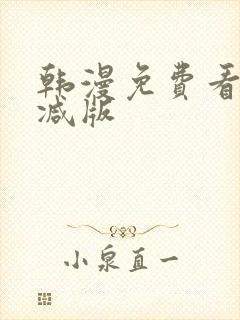 韩漫免费看
减版
小泉直一